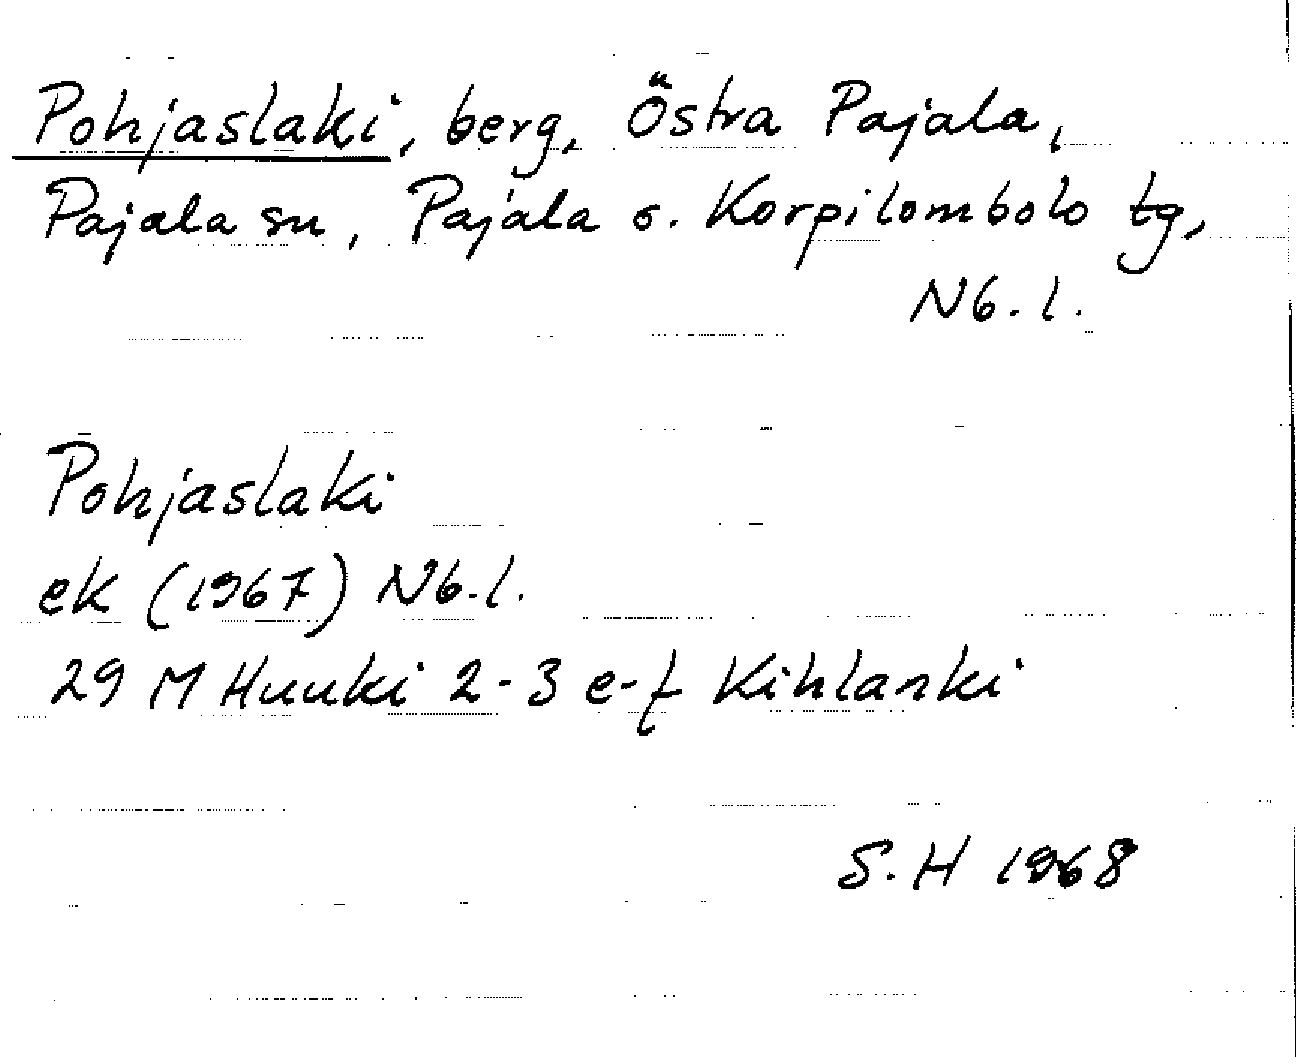 Pohjaslaki, berg, Östra Pajala,
Pajala sn, Pajala o. Korpilombolo tg,
Nb. l.
Pohjaslaki
ek (1967) Nb. l.
29 M Huuki 2-3 e-f Kihlanki
S. H 1968